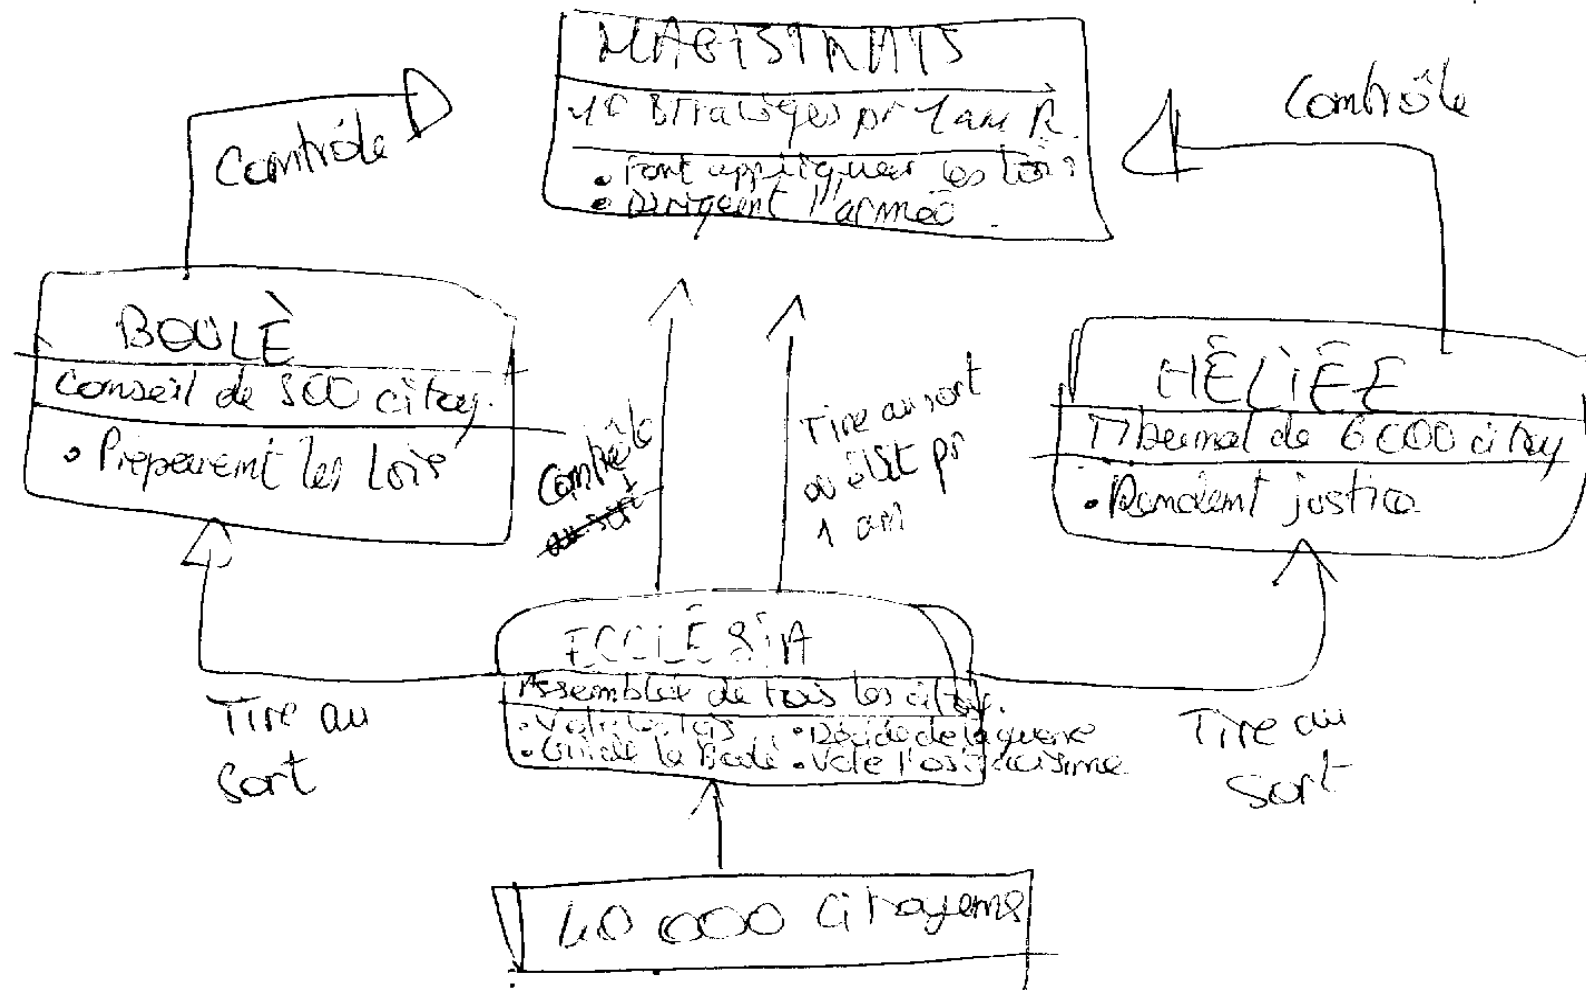 MAGISTRATS
10 Stratèges pr 1 an R.
• Font appliquer les lois
• Dirigent l'armée
Contrôle
Contrôle
BOULÈ
Conseil de 500 citoy.
• Préparent les lois
HÊLIÊE
Tribunal de 6000 citoy
• Rendent justice
Contrôle
Tire au sort
ou élit pr
1 an
ECCLÊSIA
Assemblée de tous les citoy.
• Vote les lois • Décide de la guerre
• la Boulè • Vote l'ostracisme
Tire au
sort
Tire au
Sort
40 000 Citoyens